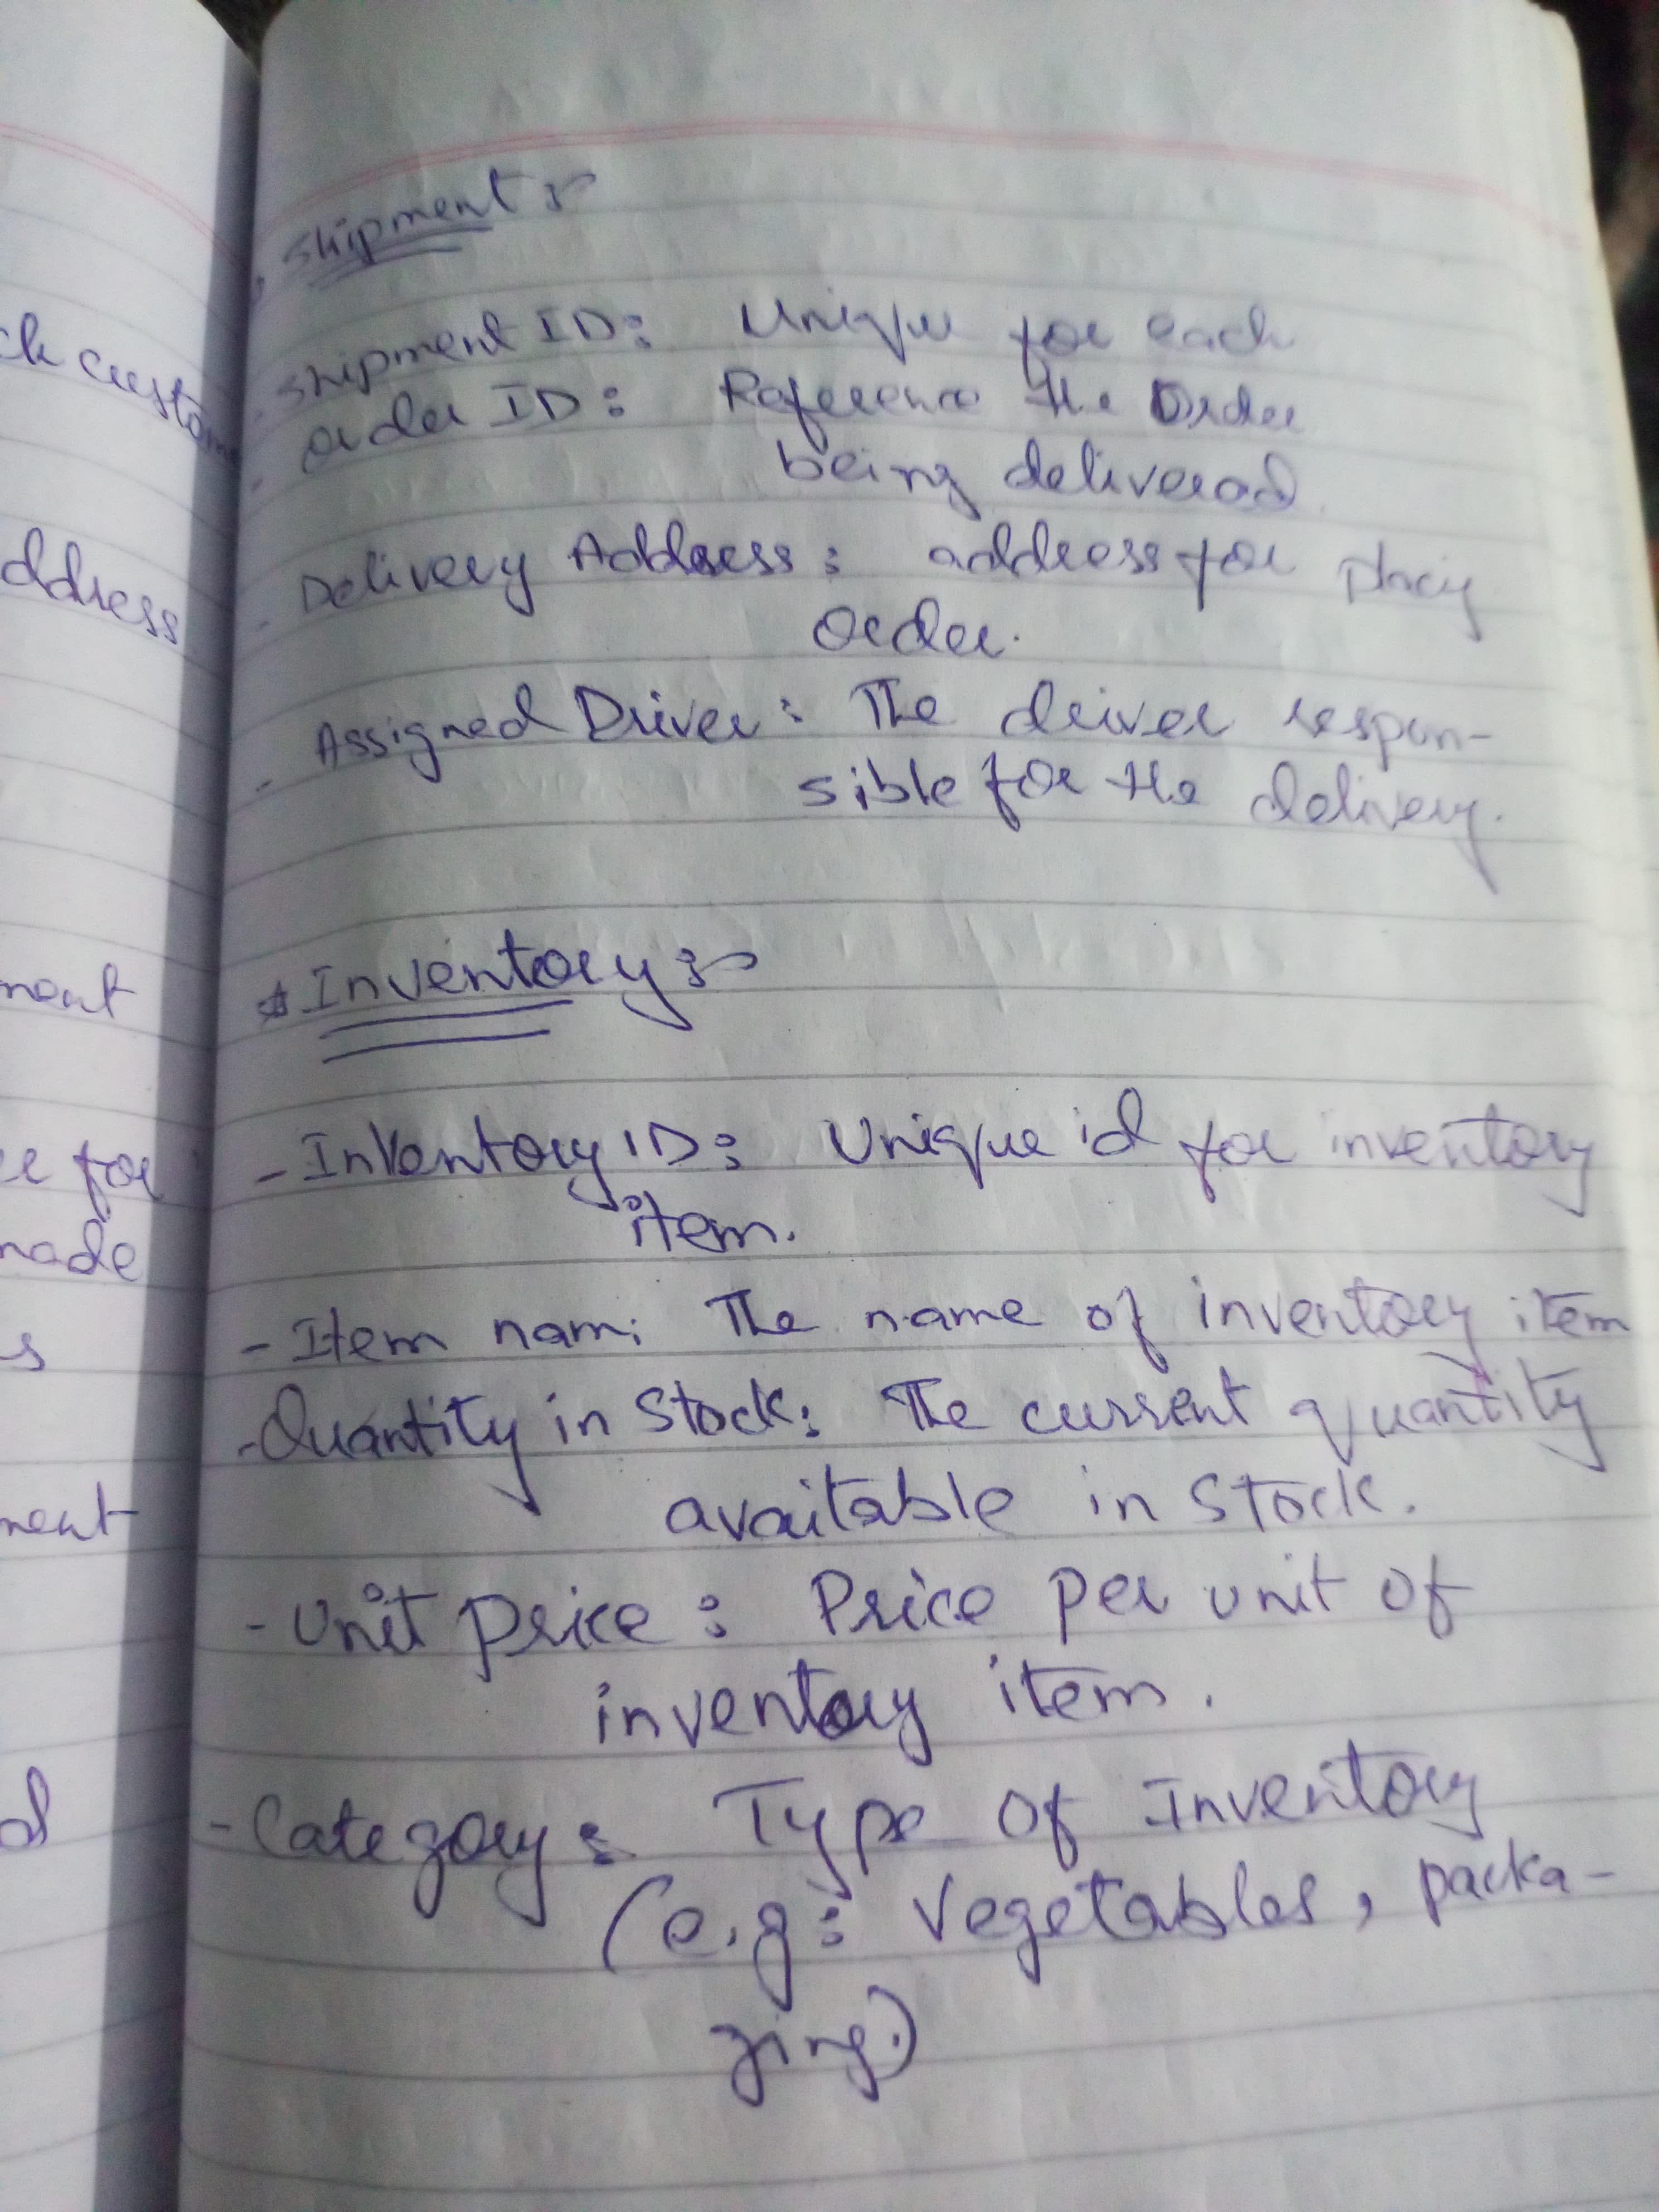 Shipment :-
- Shipment ID: Unique for each
- Order ID: Reference the Order
being delivered
- Delivery Address: address for
order.
- Assigned Driver: The driver respon-
sible for the delivery.
* Inventory :-
- Inventory ID: Unique id for inventory
item.
- Item nam: The name of inventory item
- Quantity in Stock: The current quantity
available in stock.
- Unit price: Price per unit of
inventory item.
- Category: Type of Inventory
(e.g: vegetables, packa-
ging.)
ddress
ment
for
made
s
ment
d